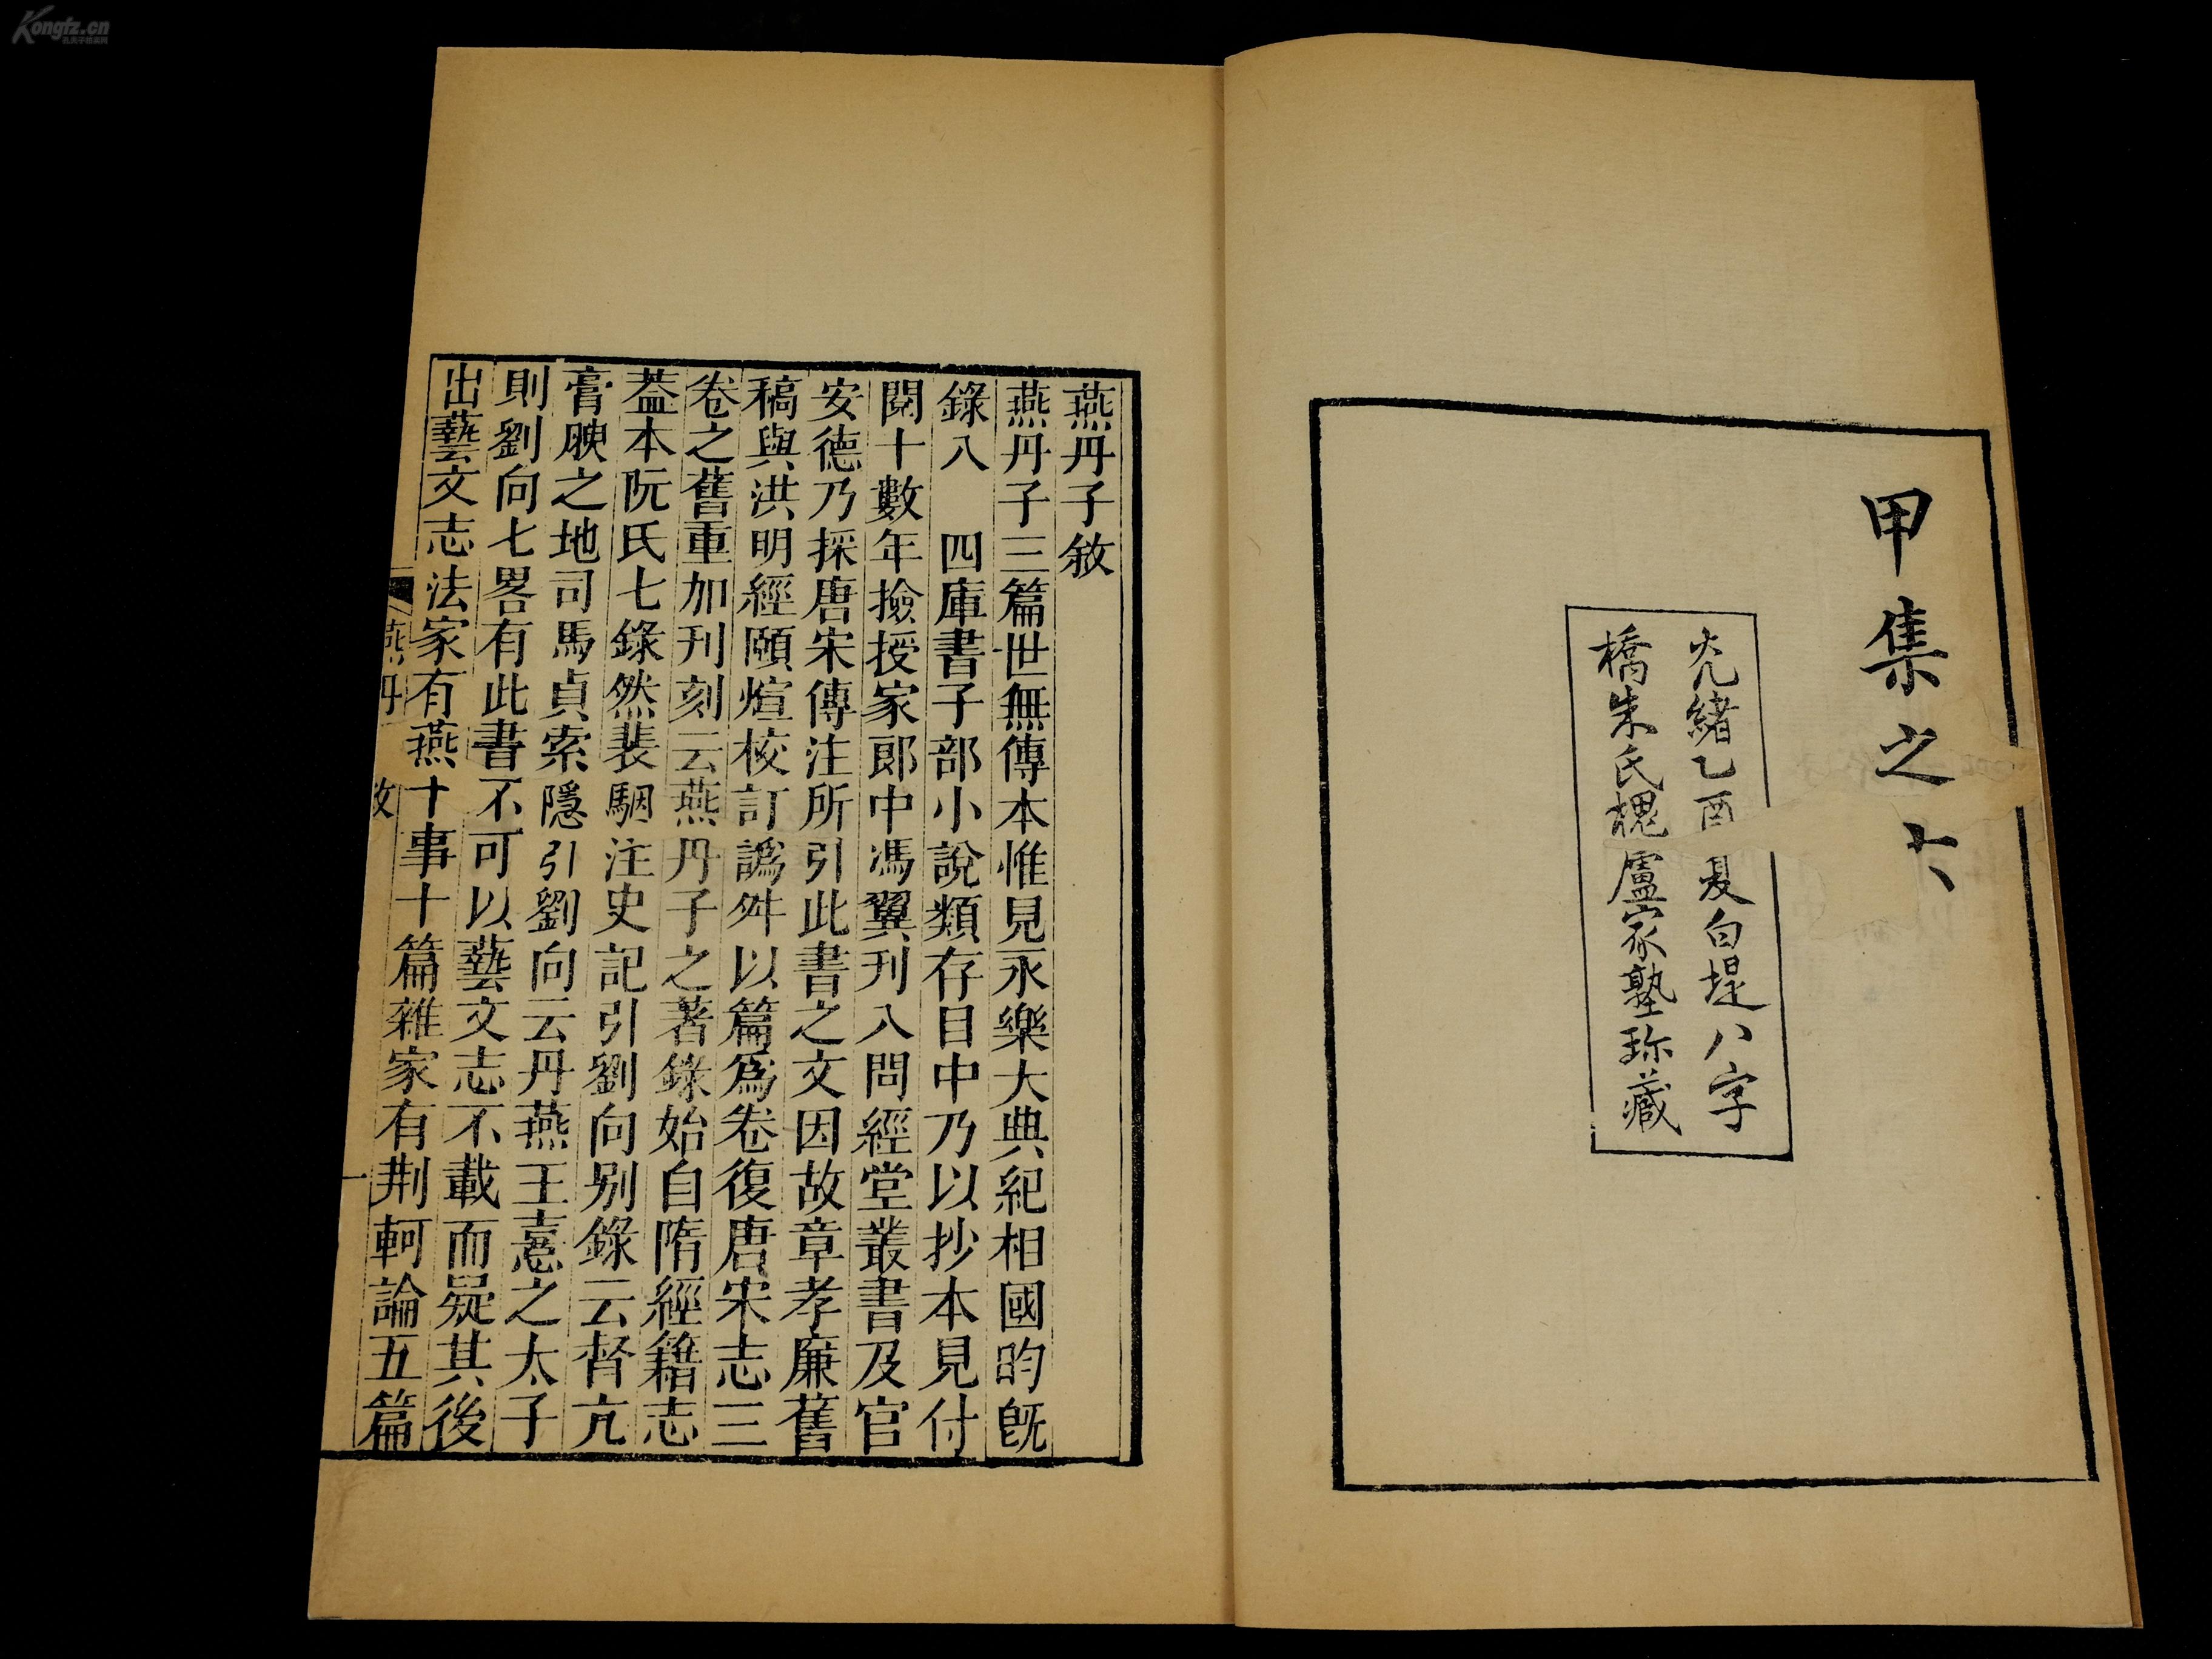 Kongfz.cn
孔夫子旧书网
甲集之六
光緒乙酉夏白堤八字
橋朱氏槐廬家塾珍藏
燕丹子敘
燕丹子三篇世無傳本惟見永樂大典紀相國昀旣
錄入　四庫書子部小說類存目中乃以抄本見付
閱十數年撿授家郎中馮翼刊入問經堂叢書及官
安德乃採唐宋傳注所引此書之文因故章孝廉舊
稿與洪明經頤煊校訂譌舛以篇爲卷復唐宋志三
卷之舊重加刊刻云燕丹子之著錄始自隋經籍志
葢本阮氏七錄然裴駰注史記引劉向别錄云督亢
膏腴之地司馬貞索隱引劉向云丹燕王憙之太子
則劉向七畧有此書不可以藝文志不載而疑其後
出藝文志法家有燕十事十篇雜家有荆軻論五篇
燕丹　敘　一